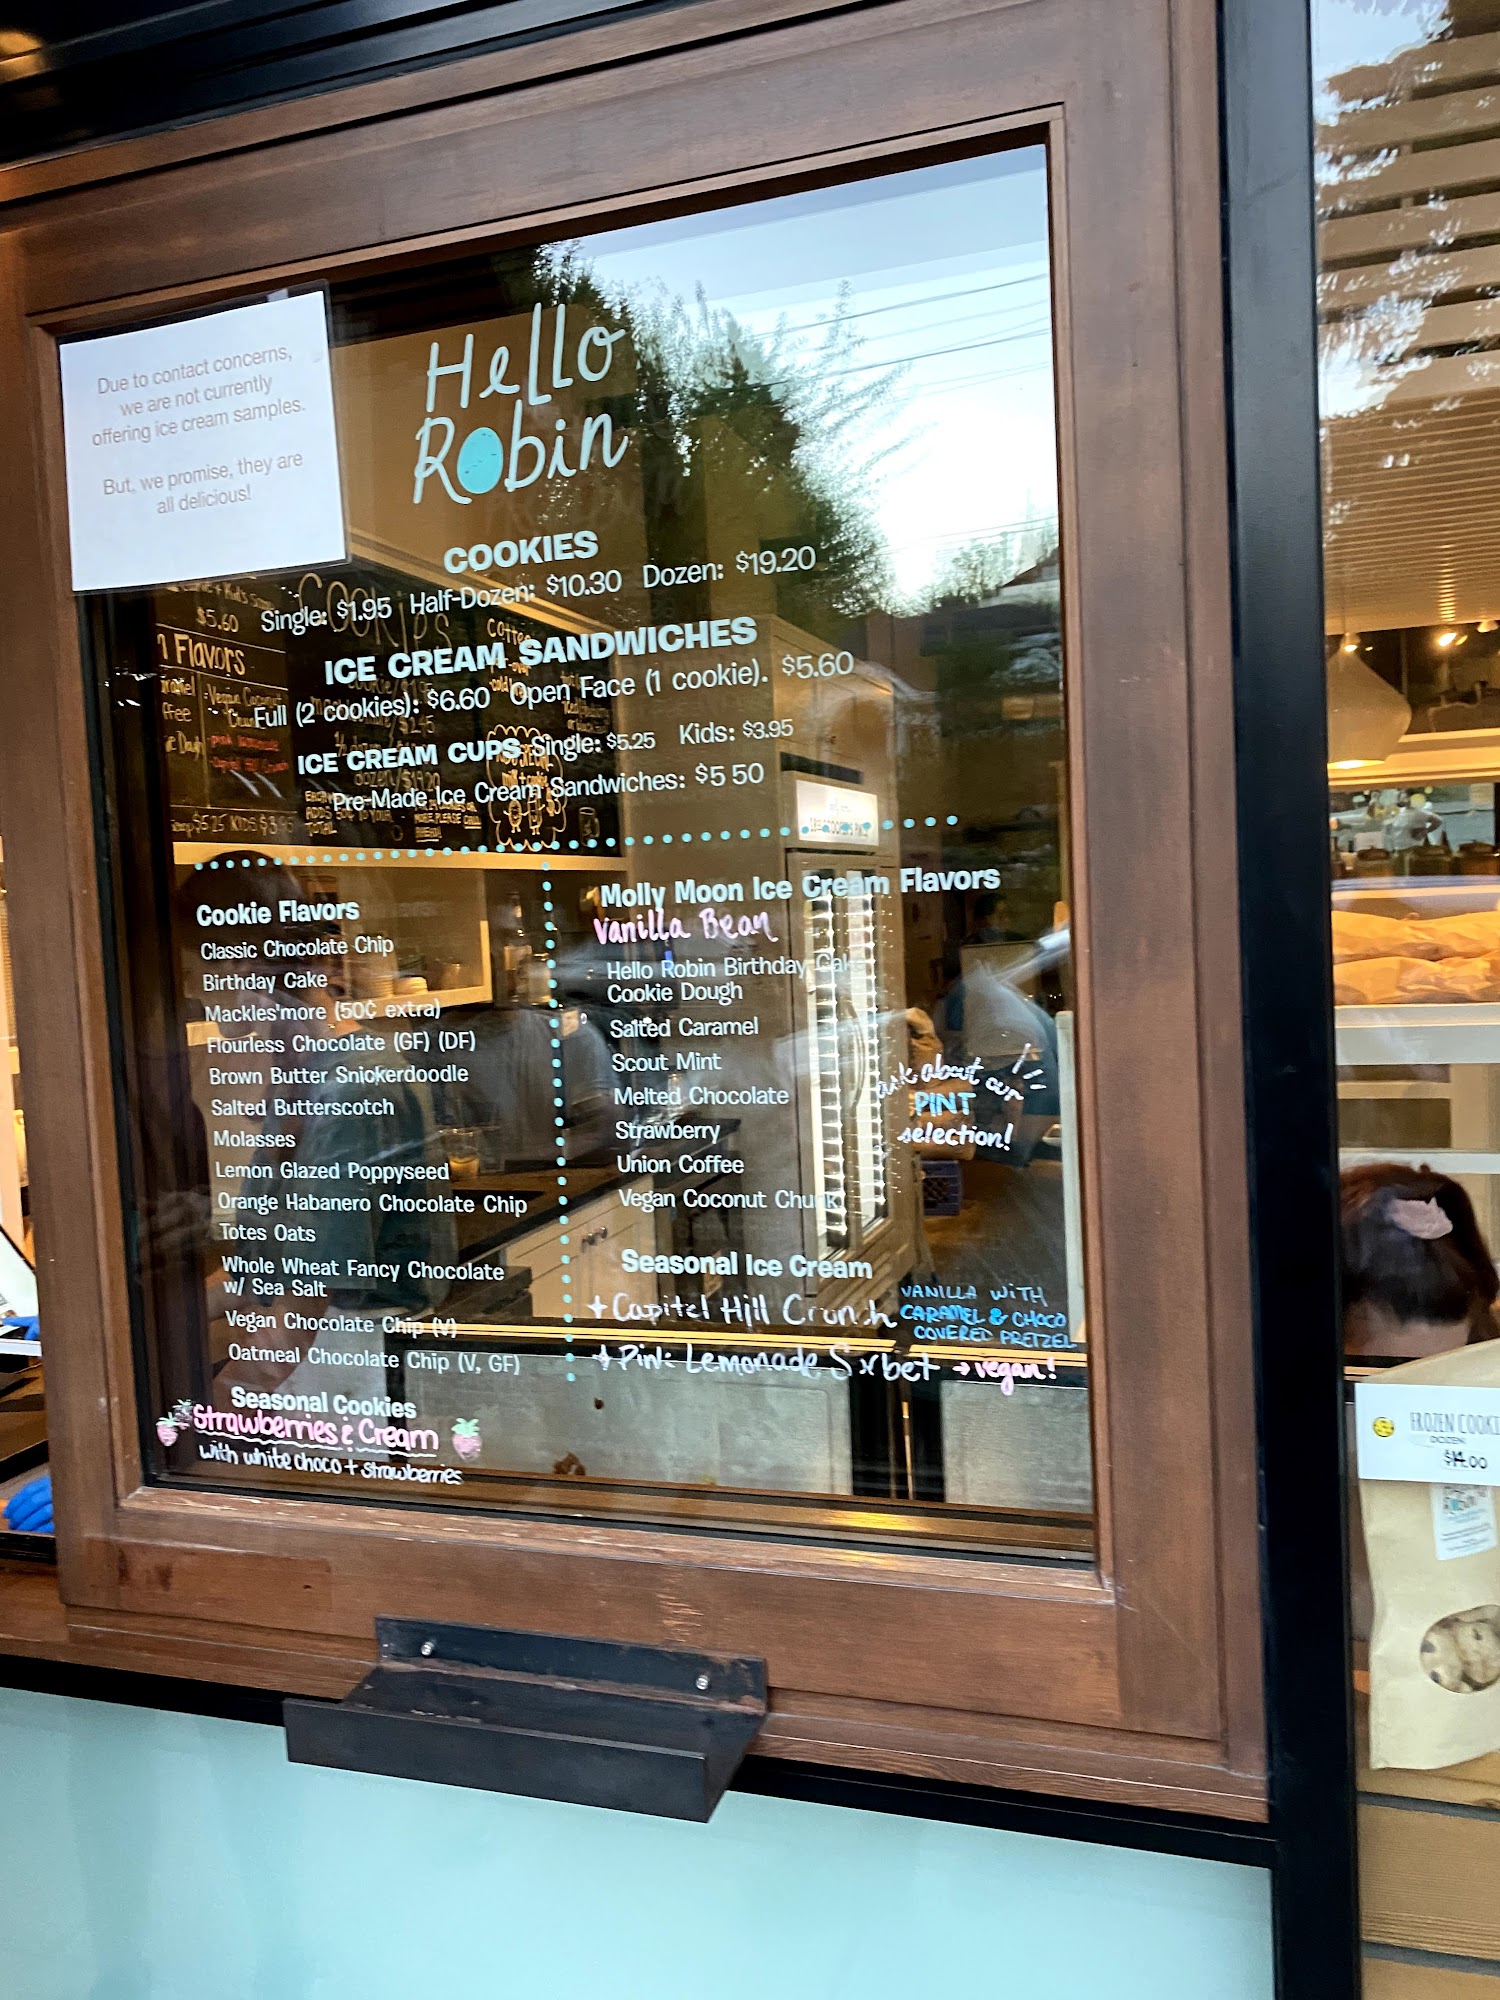 Due to contact concerns,
we are not currently
offering ice cream samples.
But, we promise, they are
all delicious!
Hello
Robin
COOKIES
Single: $1.95 Half-Dozen: $10.30 Dozen: $19.20
ICE CREAM SANDWICHES
Full (2 cookies): $6.60 Open Face (1 cookie). $5.60
ICE CREAM CUPS Single: $5.25 Kids: $3.95
Pre-Made Ice Cream Sandwiches: $5 50
Cookie Flavors
Classic Chocolate Chip
Birthday Cake
Mackles'more (50¢ extra)
Flourless Chocolate (GF) (DF)
Brown Butter Snickerdoodle
Salted Butterscotch
Molasses
Lemon Glazed Poppyseed
Orange Habanero Chocolate Chip
Totes Oats
Whole Wheat Fancy Chocolate
w/ Sea Salt
Vegan Chocolate Chip (V)
Oatmeal Chocolate Chip (V, GF)
Seasonal Cookies
Strawberries & Cream
with white choco + strawberries
Molly Moon Ice Cream Flavors
Vanilla Bean
Hello Robin Birthday Cake
Cookie Dough
Salted Caramel
Scout Mint
Melted Chocolate
Strawberry
Union Coffee
Vegan Coconut Chunk
ask about our
PINT
selection!
Seasonal Ice Cream
+ Capitol Hill Crunch
VANILLA WITH
CARAMEL & CHOCO
COVERED PRETZEL
+ Pink Lemonade Sorbet → vegan!
$5.60
n Flavors
COOKIES
FROZEN COOKI
DOZEN
$14.00